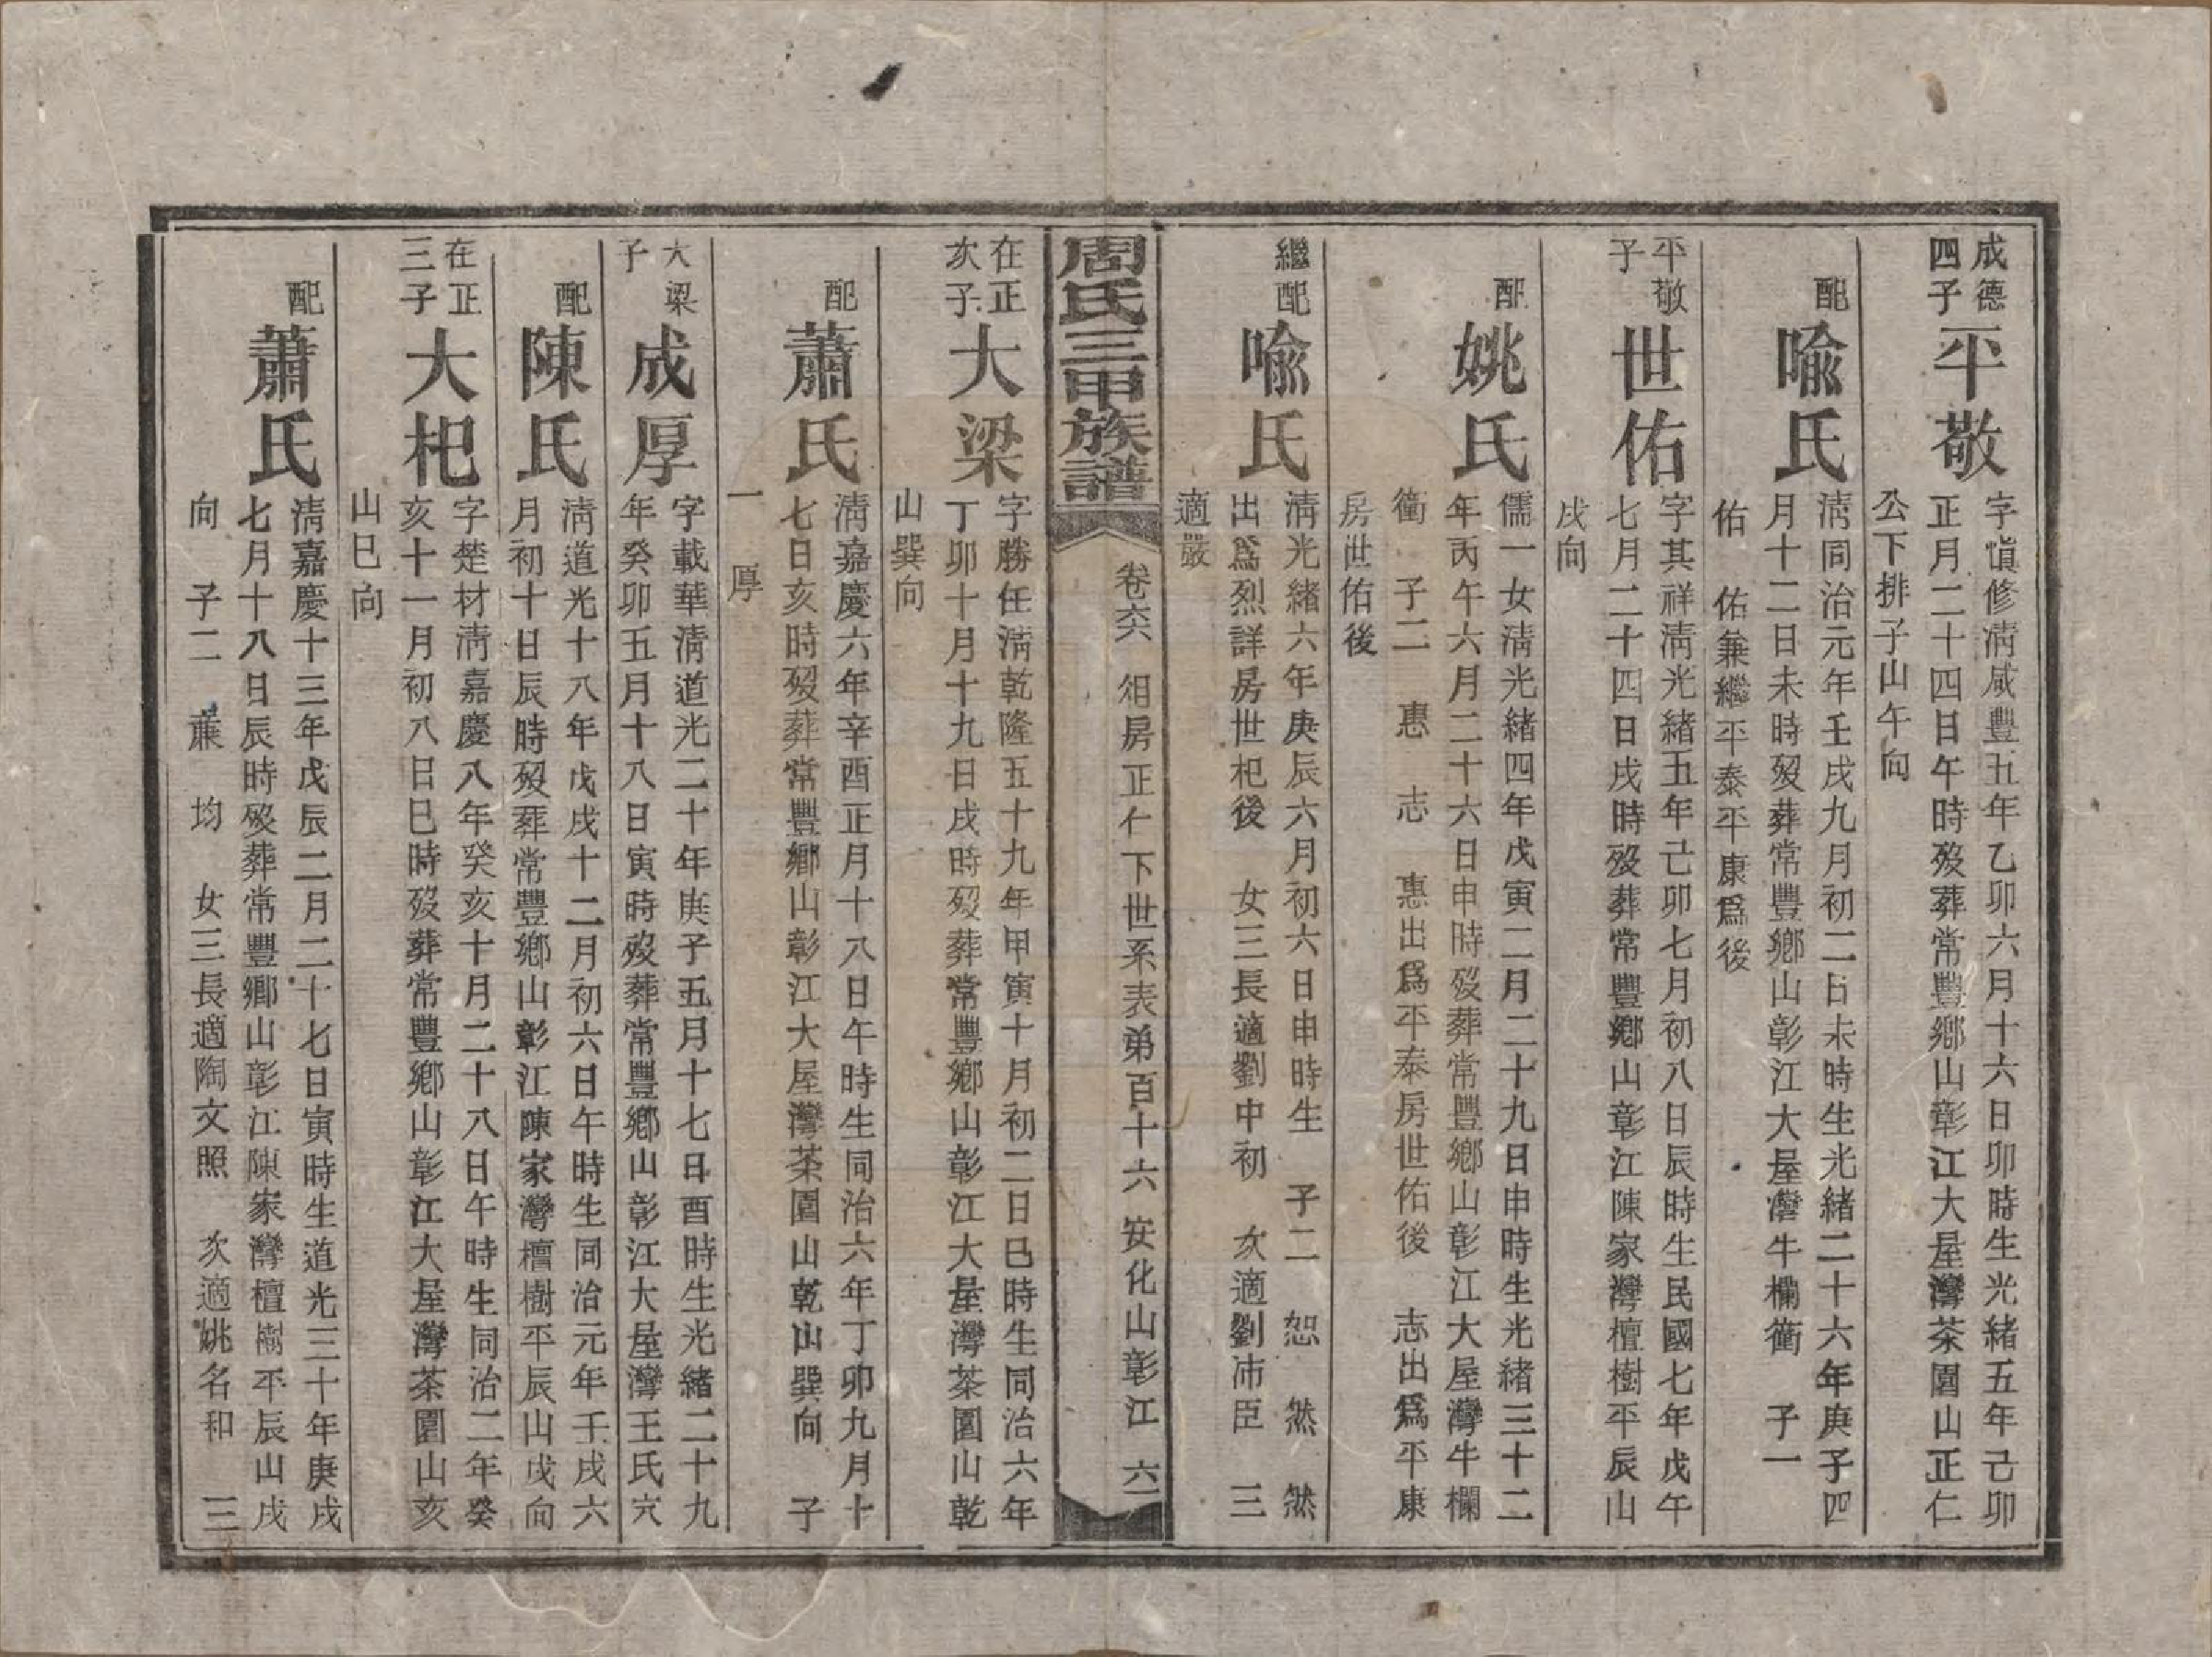 成德
四子
平敬
字愼修淸咸豐五年乙卯六月十六日卯時生光緒五年己卯
正月二十四日午時歿葬常豐鄉山彰江大屋灣茶園山正仁
公下排子山午向
配
喩氏
淸同治元年壬戌九月初二日未時生光緒二十六年庚子四
月十二日未時歿葬常豐鄉山彰江大屋灣牛欄衕 子一
佑 佑兼繼平泰平康爲後
平敬
子
世佑
字其祥淸光緒五年己卯七月初八日辰時生民國七年戊午
七月二十四日戌時歿葬常豐鄉山彰江陳家灣檀樹平辰山
戌向
配
姚氏
儒一女淸光緒四年戊寅二月二十九日申時生光緒三十二
年丙午六月二十六日申時歿葬常豐鄉山彰江大屋灣牛欄
衕 子二 惠 志 惠出爲平泰房世佑後 志出爲平康
房世佑後
繼配
喩氏
淸光緒六年庚辰六月初六日申時生 子二 恕 然 然
出爲烈詳房世杞後 女三長適劉中初 次適劉沛臣 三
適嚴
周氏三甲族譜
卷六 俎房正仁下世系表弟百十六 安化山彰江 六
在正
次子
大梁
字勝任淸乾隆五十九年甲寅十月初二日巳時生同治六年
丁卯十月十九日戌時歿葬常豐鄉山彰江大屋灣茶園山乾
山巽向
配
蕭氏
淸嘉慶六年辛酉正月十八日午時生同治六年丁卯九月十
七日亥時歿葬常豐鄉山彰江大屋灣茶園山乾山巽向 子
一 厚
大梁
子
成厚
字載華淸道光二十年庚子五月十七日酉時生光緒二十九
年癸卯五月十八日寅時歿葬常豐鄉山彰江大屋灣王氏宂
配
陳氏
淸道光十八年戊戌十二月初六日午時生同治元年壬戌六
月初十日辰時歿葬常豐鄉山彰江陳家灣檀樹平辰山戌向
在正
三子
大杞
字楚材淸嘉慶八年癸亥十月二十八日午時生同治二年癸
亥十一月初八日巳時歿葬常豐鄉山彰江大屋灣茶園山亥
山巳向
配
蕭氏
淸嘉慶十三年戊辰二月二十七日寅時生道光三十年庚戌
七月十八日辰時歿葬常豐鄉山彰江陳家灣檀樹平辰山戌
向 子二 蔴 均 女三長適陶文照 次適姚名和 三